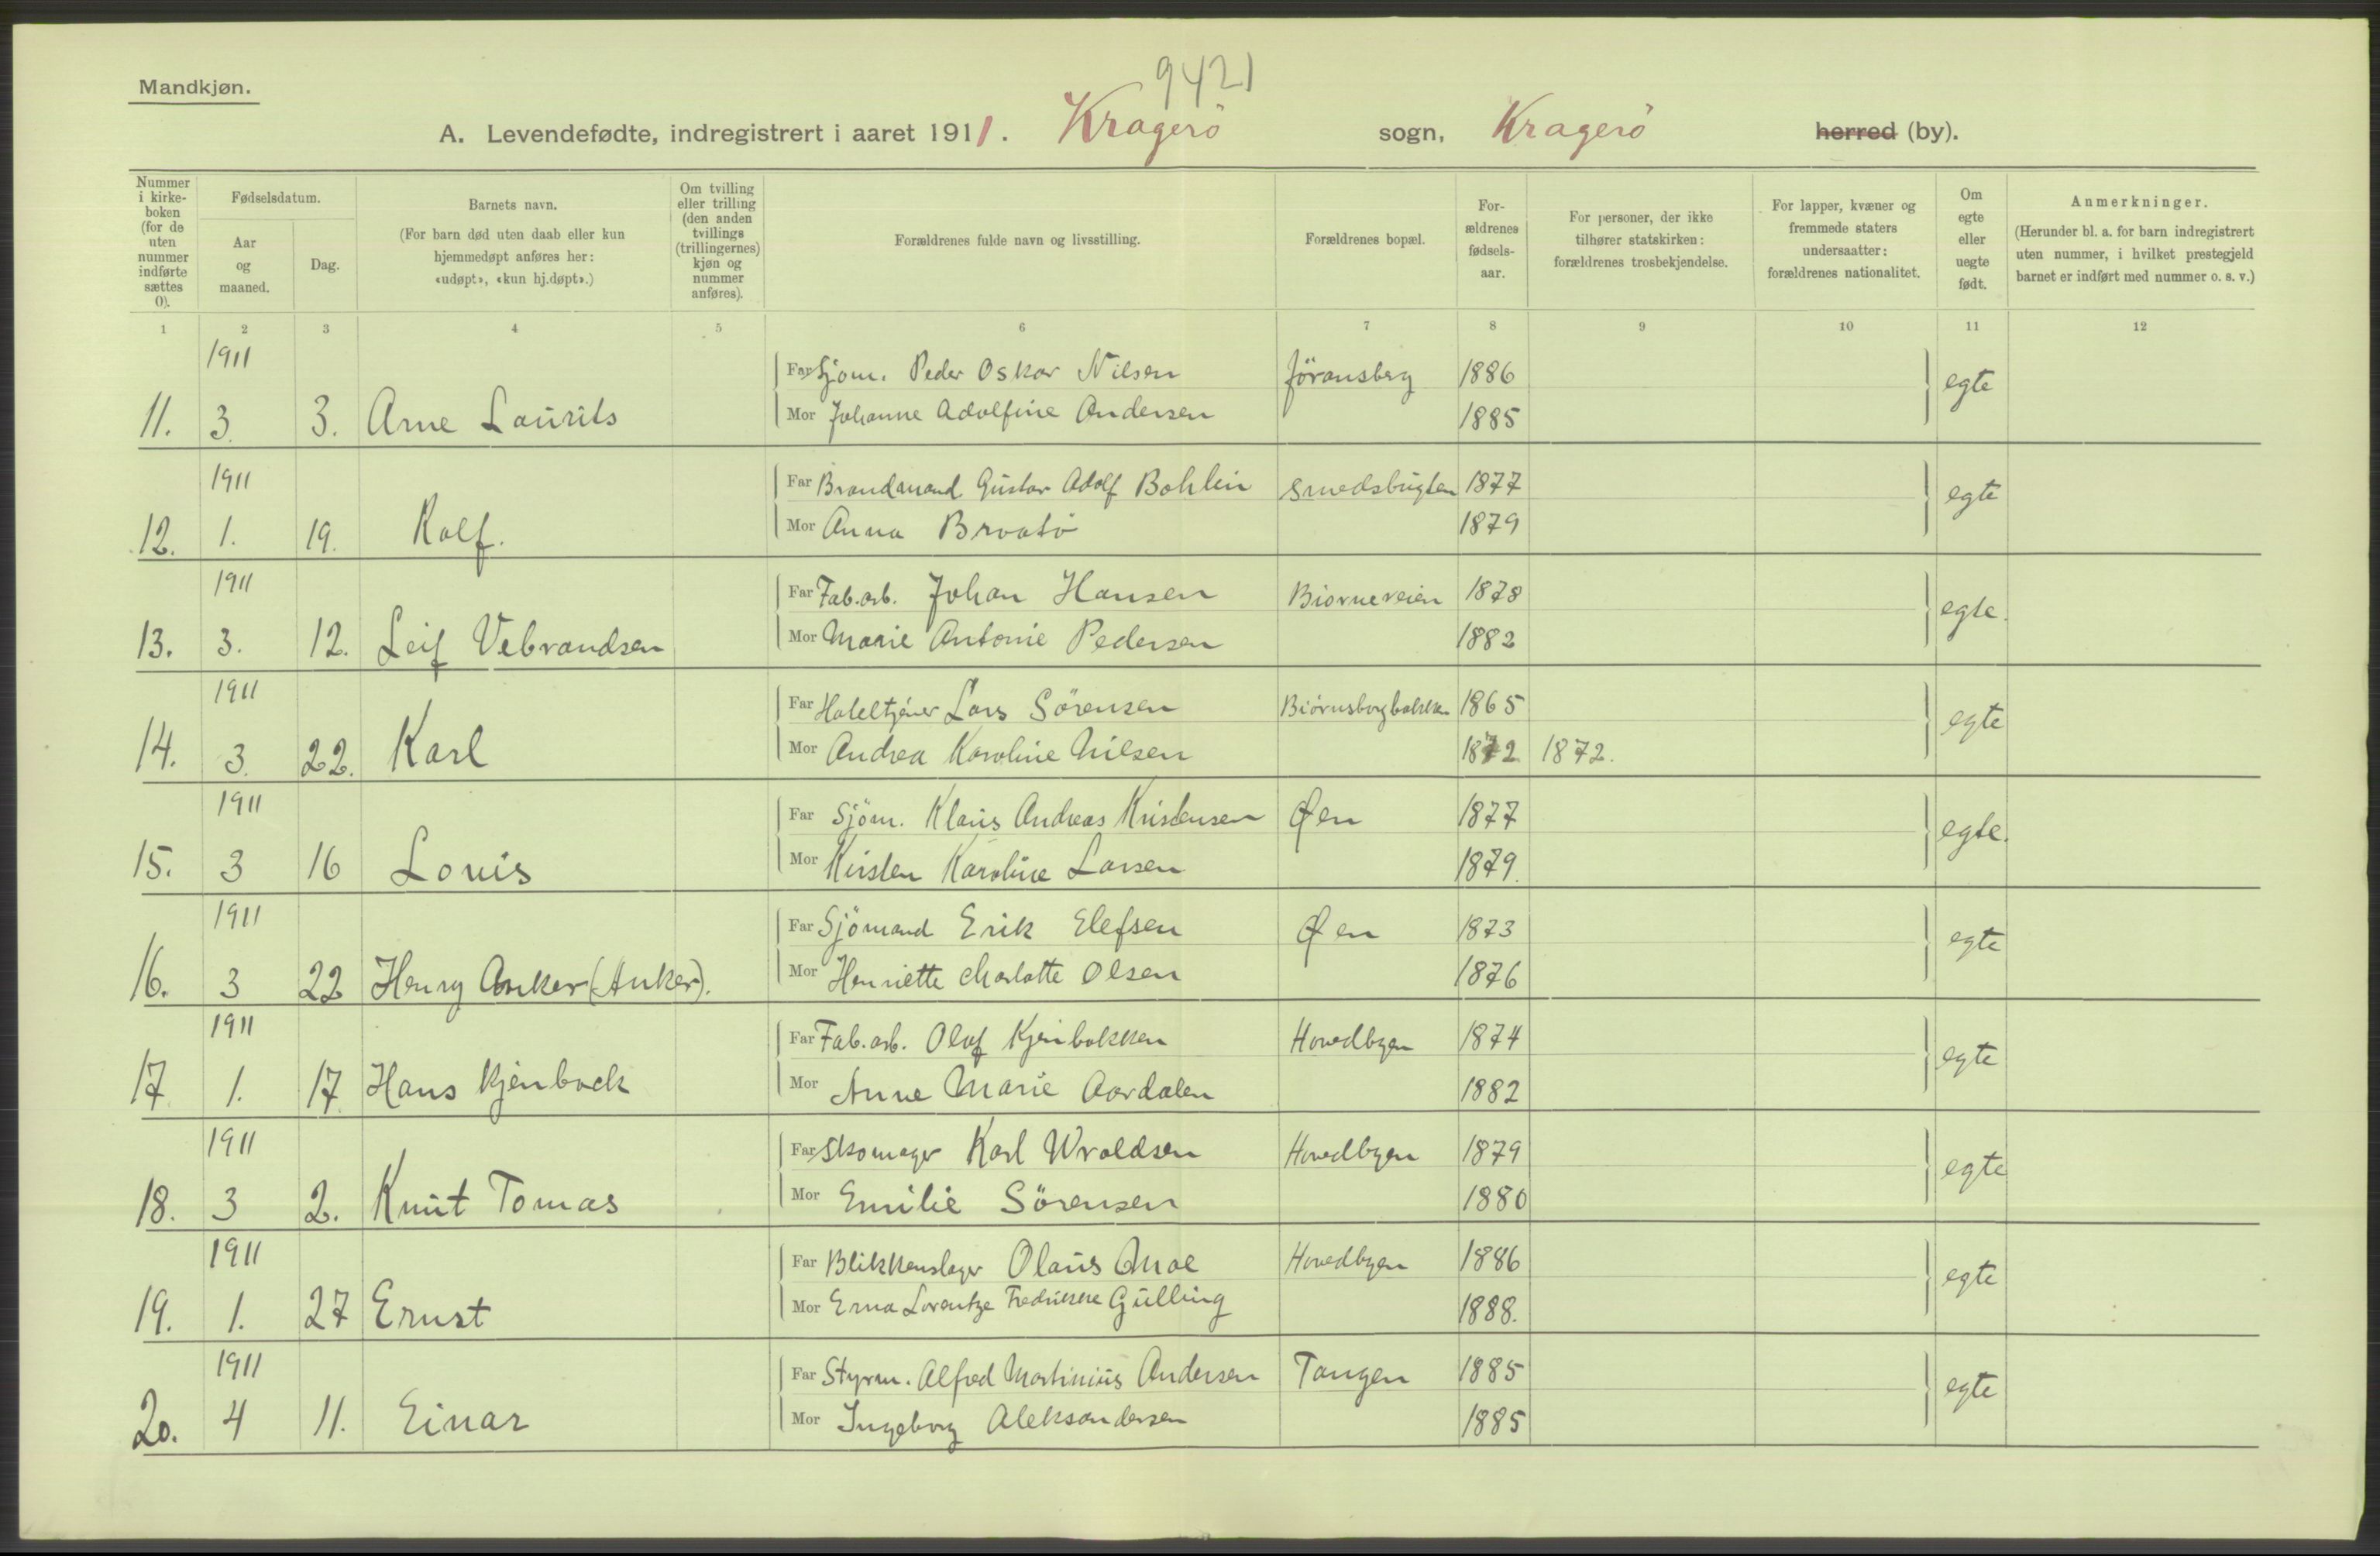 9421
Mandkjøn.
A. Levendefødte, indregistrert i aaret 1911. Kragerö sogn, Kragerö herred (by).
Nummer i kirke-boken (for de uten nummer indførte sættes 0).
Fødselsdatum.
Aar og maaned.
Dag.
Barnets navn.
(For barn død uten daab eller kun hjemmedøpt anføres her: «udøpt», «kun hj.døpt».)
Om tvilling eller trilling (den anden tvillings (trillingernes) kjøn og nummer anføres).
Forældrenes fulde navn og livsstilling.
Forældrenes bopæl.
For-ældrenes fødsels-aar.
For personer, der ikke tilhører statskirken: forældrenes trosbekjendelse.
For lapper, kvæner og fremmede staters undersaatter: forældrenes nationalitet.
Om egte eller uegte født.
Anmerkninger.
(Herunder bl. a. for barn indregistrert uten nummer, i hvilket prestegjeld barnet er indført med nummer o. s. v.)
1 2 3 4 5 6 7 8 9 10 11 12
1911 Far Sjøm. Peder Oskar Nilsen Jöransberg 1886 egte
11. 3. 3. Arne Laurits Mor Johanne Adolfine Andersen 1885
1911 Far Brandmand Gustav Adolf Bohlin Smedsbugten 1877 egte
12. 1. 19. Rolf. Mor Anna Bråtö 1879
1911 Far Fab.arb. Johan Hansen Biorneveien 1878 egte.
13. 3. 12. Leif Vebrandsen Mor Marie Antonie Pedersen 1882
1911 Far Hoteltjener Lars Sörensen Biörnsborgbakken 1865 egte
14. 3. 22. Karl Mor Andrea Karoline Nilsen 1872 1872.
1911 Far Sjöm. Klaus Andreas Kristensen Øen 1877 egte.
15. 3 16 Louis Mor Kirsten Karoline Larsen 1879.
1911 Far Sjömand Erik Elefsen Øen 1873 egte
16. 3 22 Henry Anker (Anker). Mor Henriette Charlotte Olsen 1876
1911 Far Fab.arb. Olaf Kjenbakken Hovedbyen 1874 egte
17 1. 17 Hans Kjenback Mor Anne Marie Aardalen 1882
1911 Far Skomager Karl Wroldsen Hovedbyen 1879 egte
18. 3 2. Knut Tomas Mor Emilie Sörensen 1880
1911 Far Blikkenslager Olaus Moe Hovedbyen 1886 egte
19. 1. 27 Ernst Mor Erna Lorentze Fredrikke Gulling 1888.
1911 Far Styrm. Alfred Martinius Andersen Tangen 1885 egte
20. 4 11. Einar Mor Ingeborg Aleksandersen 1885